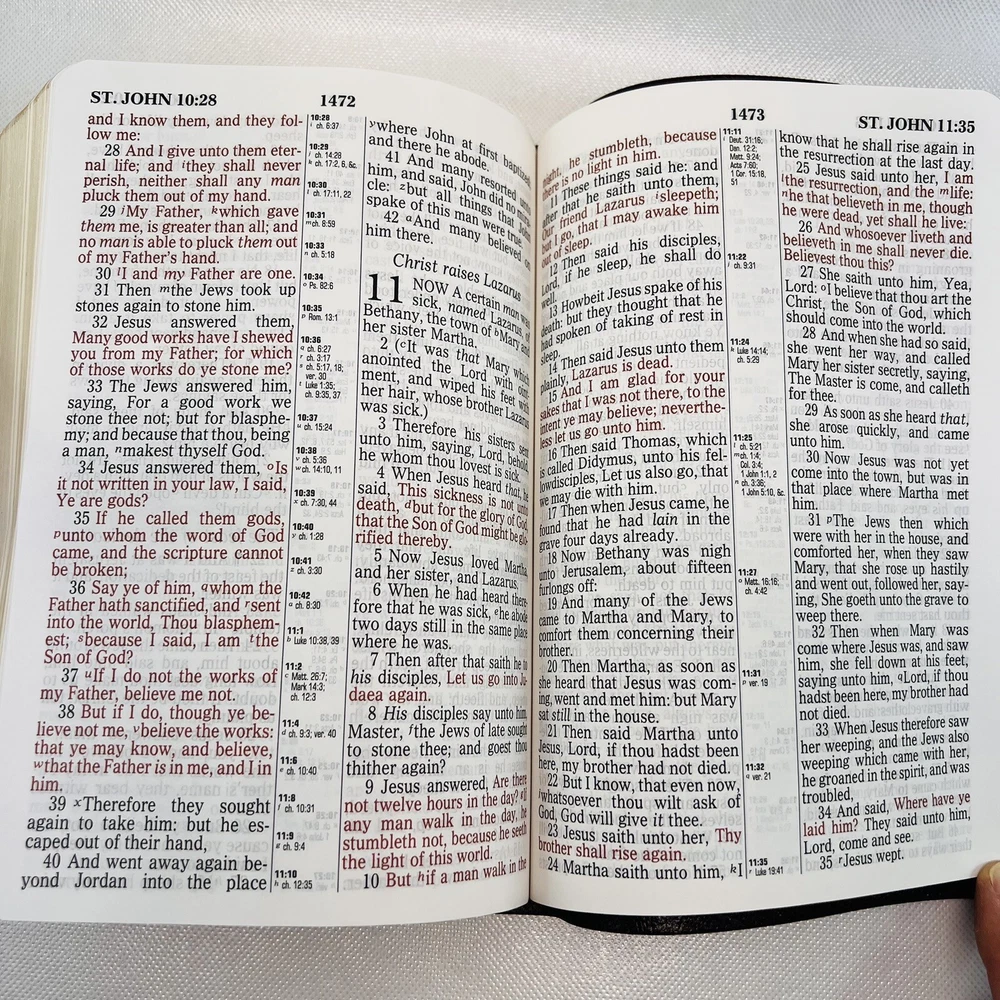 ST. JOHN 10:28
1472
and I know them, and they fol-
low me:
28 And I give unto them eter-
nal life; and ithey shall never
perish, neither shall any man
pluck them out of my hand.
29 jMy Father, kwhich gave
them me, is greater than all; and
no man is able to pluck them out
of my Father's hand.
30 lI and my Father are one.
31 Then mthe Jews took up
stones again to stone him.
32 Jesus answered them,
Many good works have I shewed
you from my Father; for which
of those works do ye stone me?
33 The Jews answered him,
saying, For a good work we
stone thee not; but for blasphe-
my; and because that thou, being
a man, nmakest thyself God.
34 Jesus answered them, oIs
it not written in your law, I said,
Ye are gods?
35 If he called them gods,
punto whom the word of God
came, and the scripture cannot
be broken;
36 Say ye of him, qwhom the
Father hath sanctified, and rsent
into the world, Thou blasphem-
est; sbecause I said, I am tthe
Son of God?
37 uIf I do not the works of
my Father, believe me not.
38 But if I do, though ye be-
lieve not me, vbelieve the works:
that ye may know, and believe,
wthat the Father is in me, and I in
him.
39 xTherefore they sought
again to take him: but he es-
caped out of their hand,
40 And went away again be-
yond Jordan into the place
10:28
i ch. 6:37
10:29
j ch. 14:28
k ch. 17:2, 6, &c.
10:30
l ch. 17:11, 22
10:31
m ch. 8:59
10:33
n ch. 5:18
10:34
o Ps. 82:6
10:35
p Rom. 13:1
10:36
q ch. 6:27
r ch. 3:17
s ch. 5:17, 18;
ver. 30
t Luke 1:35;
ch. 9:35, 37
10:37
u ch. 15:24
10:38
v ch. 5:36
w ch. 14:10, 11
10:39
x ch. 7:30, 44
10:40
y ch. 1:28
10:41
z ch. 3:30
10:42
a ch. 8:30
11:1
b Luke 10:38, 39
11:2
c Matt. 26:7;
Mark 14:3;
ch. 12:3
11:4
d ch. 9:3; ver. 40
11:6
e ch. 10:40
11:8
f ch. 10:31
11:9
g ch. 9:4
11:10
h ch. 12:35
ywhere John at first baptized;
and there he abode.
41 And many resorted unto
him, and said, John did no mira-
cle: zbut all things that John
spake of this man were true.
42 aAnd many believed on
him there.
Christ raises Lazarus
11 NOW A certain man was
sick, named Lazarus, of
Bethany, the town of bMary and
her sister Martha.
2 (cIt was that Mary which
anointed the Lord with oint-
ment, and wiped his feet with
her hair, whose brother Lazarus
was sick.)
3 Therefore his sisters sent
unto him, saying, Lord, behold,
he whom thou lovest is sick.
4 When Jesus heard that, he
said, This sickness is not unto
death, dbut for the glory of God,
that the Son of God might be glo-
rified thereby.
5 Now Jesus loved Martha,
and her sister, and Lazarus.
6 When he had heard there-
fore that he was sick, ehe abode
two days still in the same place
where he was.
7 Then after that saith he to
his disciples, Let us go into Ju-
daea again.
8 His disciples say unto him,
Master, fthe Jews of late sought
to stone thee; and goest thou
thither again?
9 Jesus answered, Are there
not twelve hours in the day? gIf
any man walk in the day, he
stumbleth not, because he seeth
the light of this world.
10 But hif a man walk in the
1473
ST. JOHN 11:35
night, he stumbleth, because
there is no light in him.
11 These things said he: and
after that he saith unto them,
Our friend Lazarus isleepeth;
but I go, that I may awake him
out of sleep.
12 Then said his disciples,
Lord, if he sleep, he shall do
well.
13 Howbeit Jesus spake of his
death: but they thought that he
had spoken of taking of rest in
sleep.
14 Then said Jesus unto them
plainly, Lazarus is dead.
15 And I am glad for your
sakes that I was not there, to the
intent ye may believe; neverthe-
less let us go unto him.
16 Then said Thomas, which
is called Didymus, unto his fel-
lowdisciples, Let us also go, that
we may die with him.
17 Then when Jesus came, he
found that he had lain in the
grave four days already.
18 Now Bethany was nigh
unto Jerusalem, about fifteen
furlongs off:
19 And many of the Jews
came to Martha and Mary, to
comfort them concerning their
brother.
20 Then Martha, as soon as
she heard that Jesus was com-
ing, went and met him: but Mary
sat still in the house.
21 Then said Martha unto
Jesus, Lord, if thou hadst been
here, my brother had not died.
22 But I know, that even now,
jwhatsoever thou wilt ask of
God, God will give it thee.
23 Jesus saith unto her, Thy
brother shall rise again.
24 Martha saith unto him, kI
11:11
i Deut. 31:16;
Dan. 12:2;
Matt. 9:24;
Acts 7:60;
1 Cor. 15:18,
51
11:22
j ch. 9:31
11:24
k Luke 14:14;
ch. 5:29
11:25
l ch. 5:21
m ch. 1:4;
Col. 3:4;
1 John 1:1, 2
n ch. 3:36;
1 John 5:10, &c.
11:27
o Matt. 16:16;
ch. 4:42
11:31
p ver. 19
11:32
q ver. 21
11:35
r Luke 19:41
know that he shall rise again in
the resurrection at the last day.
25 Jesus said unto her, I am
lthe resurrection, and the mlife:
nhe that believeth in me, though
he were dead, yet shall he live:
26 And whosoever liveth and
believeth in me shall never die.
Believest thou this?
27 She saith unto him, Yea,
Lord: oI believe that thou art the
Christ, the Son of God, which
should come into the world.
28 And when she had so said,
she went her way, and called
Mary her sister secretly, saying,
The Master is come, and calleth
for thee.
29 As soon as she heard that,
she arose quickly, and came
unto him.
30 Now Jesus was not yet
come into the town, but was in
that place where Martha met
him.
31 pThe Jews then which
were with her in the house, and
comforted her, when they saw
Mary, that she rose up hastily
and went out, followed her, say-
ing, She goeth unto the grave to
weep there.
32 Then when Mary was
come where Jesus was, and saw
him, she fell down at his feet,
saying unto him, qLord, if thou
hadst been here, my brother had
not died.
33 When Jesus therefore saw
her weeping, and the Jews also
weeping which came with her,
he groaned in the spirit, and was
troubled,
34 And said, Where have ye
laid him? They said unto him,
Lord, come and see.
35 rJesus wept.